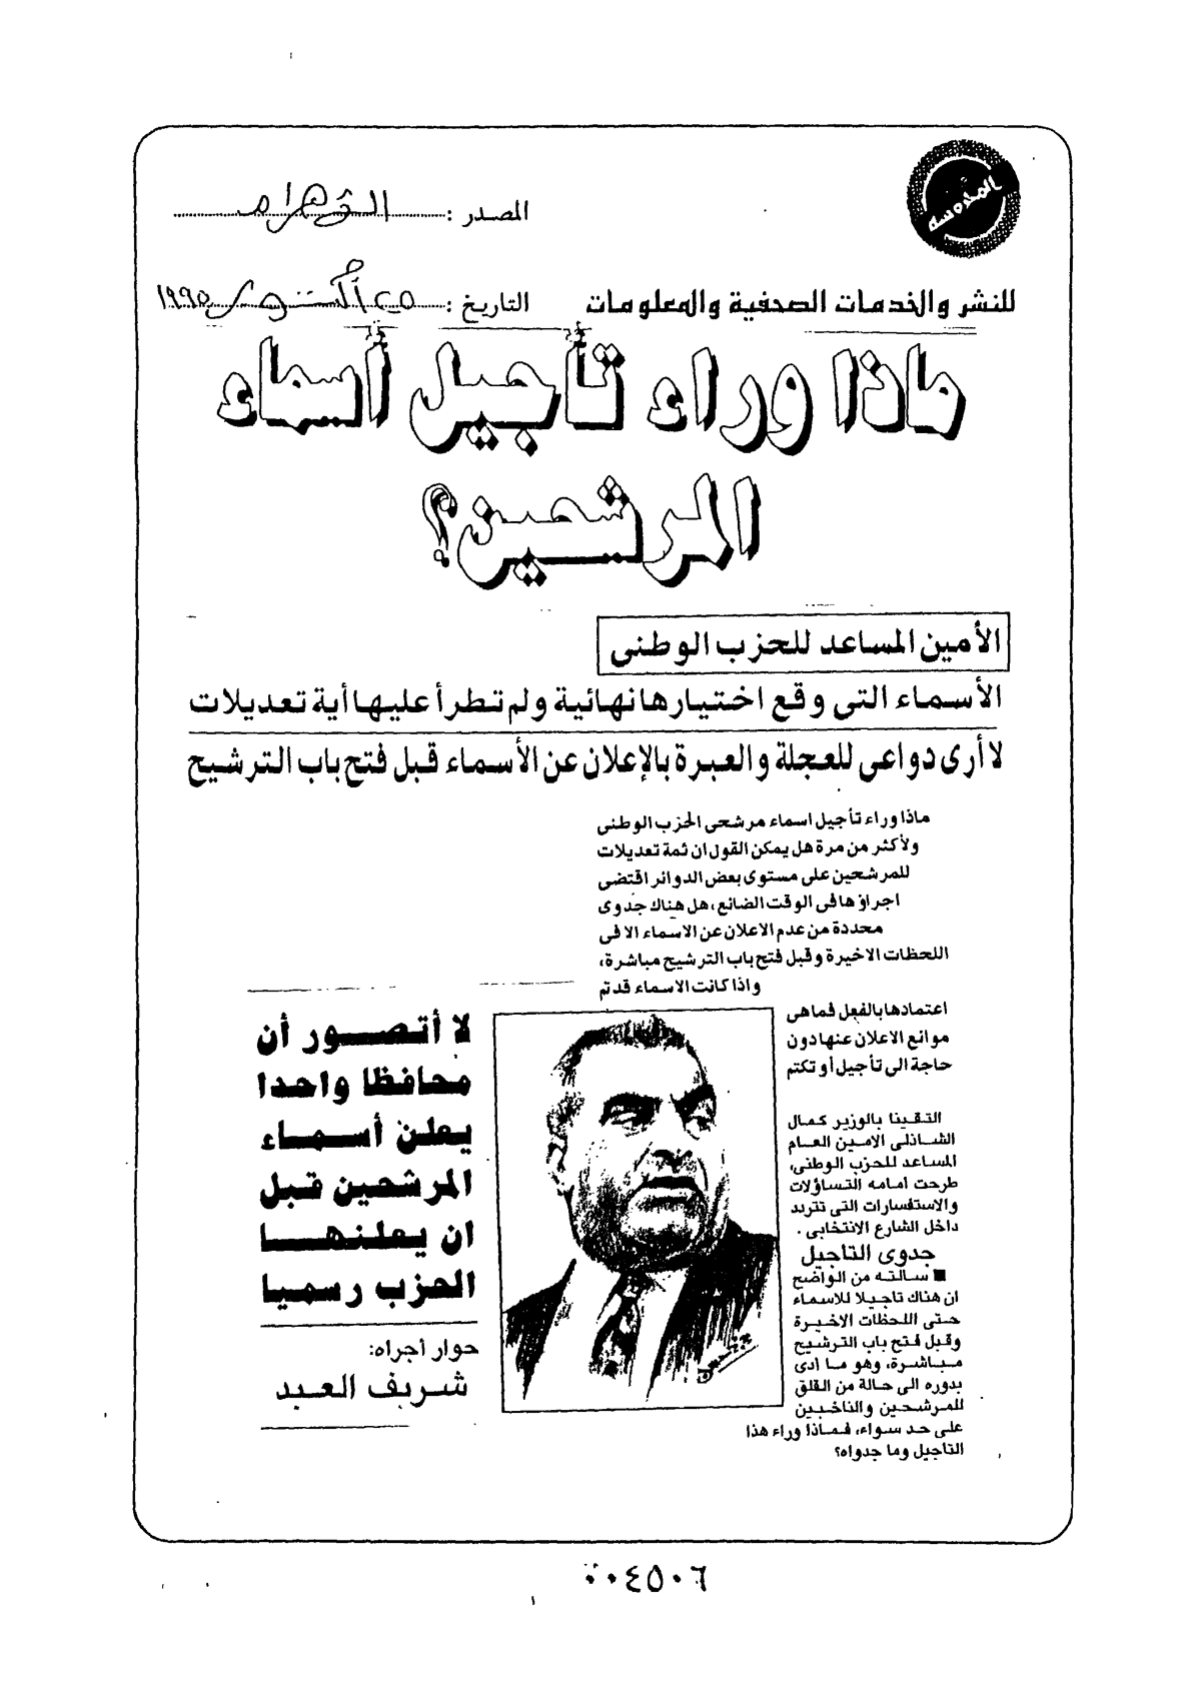 المدوسه
المصدر : الأهرام
للنشر والخدمات الصحفية والمعلومات
التاريخ : ٢٥ أكتوبر ١٩٩٥
ماذا وراء تأجيل أسماء
المرشحين؟
الأمين المساعد للحزب الوطنى
الأسماء التى وقع اختيارها نهائية ولم تطرأ عليها أية تعديلات
لا أرى دواعى للعجلة والعبرة بالإعلان عن الأسماء قبل فتح باب الترشيح
ماذا وراء تأجيل اسماء مرشحى الحزب الوطنى
ولأكثر من مرة هل يمكن القول ان ثمة تعديلات
للمرشحين على مستوى بعض الدوائر اقتضى
اجراؤها فى الوقت الضائع، هل هناك جدوى
محددة من عدم الاعلان عن الاسماء الا فى
اللحظات الاخيرة وقبل فتح باب الترشيح مباشرة،
واذا كانت الاسماء قد تم
اعتمادها بالفعل فما هى
موانع الاعلان عنها دون
حاجة الى تأجيل أو تكتم
التقينا بالوزير كمال
الشاذلى الامين العام
المساعد للحزب الوطنى،
طرحت امامه التساؤلات
والاستفسارات التى تتردد
داخل الشارع الانتخابى .
جدوى التاجيل
■ سالته من الواضح
ان هناك تاجيلا للاسماء
حتى اللحظات الاخيرة
وقبل فتح باب الترشيح
مباشرة، وهو ما ادى
بدوره الى حالة من القلق
للمرشحين والناخبين
على حد سواء، فماذا وراء هذا
التاجيل وما جدواه؟
لا أتصور أن
محافظا واحدا
يعلن أسماء
المرشحين قبل
ان يعلنها
الحزب رسميا
حوار أجراه:
شريف العبد
٠٠٤٥٠٦